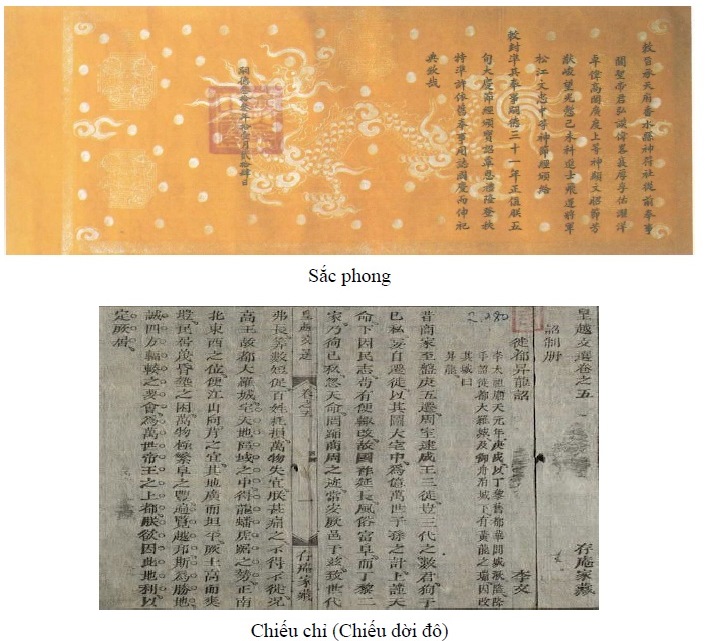 敕旨承天府香水縣神符社從前奉事
關聖帝君弘謨偉畧襄厚孚佑濯洋
卓偉高閎廣度上等神顯文昭節芳
猷峻望光懿己未科進士飛遒將軍
松江文忠中等神節經頒給
敕封準其奉事嗣德三十一年正值朕五
旬大慶節經頒寶詔覃恩禮隆登秩
特準許依舊奉事用誌國慶而伸祀
典欽哉
嗣德叁拾叁年拾壹月貳拾肆日
Sắc phong
皇越文選卷之五 存庵家藏
詔制册
徙都昇龍詔 李文
李太祖順天元年庚戌以丁黎舊都華閭城狹隘
手詔徙都大羅城及御舟泊城下有黃龍之瑞因改
其城曰
昇龍
昔商家至盤庚五遷周室逮成王三徙豈三代之數君徇于
己私妄自遷徙以其圖大宅中為億萬世子孫之計上謹天
命下因民志苟有便輒改故國祚延長風俗富阜而丁黎二
家乃徇己私忽天命罔蹈商周之迹常安厥邑于玆致世代
皇越文選 卷之五 一 存庵家藏
弗長算數短促百姓耗損萬物失宜朕甚痛之不得不徙況
高王故都大羅城宅天地區域之中得龍蟠虎踞之勢正南
北東西之位便江山向背之宜其地廣而坦平厥土高而爽
塏民居蔑昏墊之困萬物極繁阜之豐遍覽越邦斯為勝地
誠四方輻輳之要會為萬世帝王之上都朕欲因此地利以
定厥居
Chiếu chỉ (Chiếu dời đô)